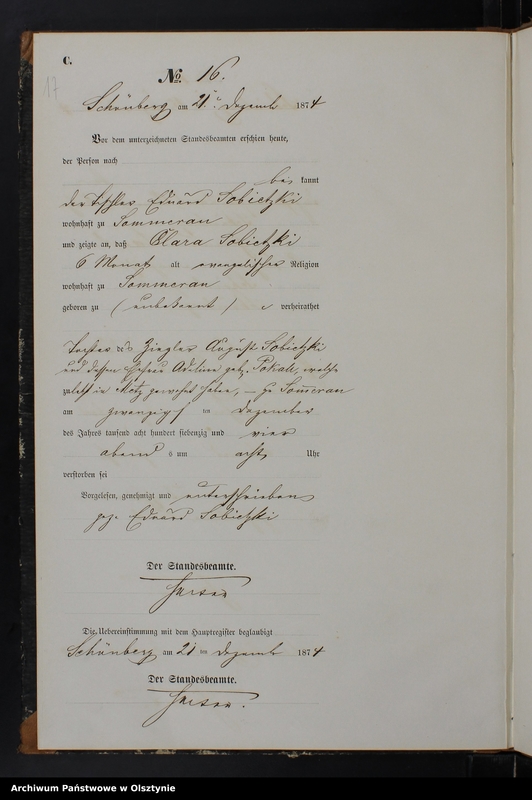 C.
17
No. 16.
Schönberg am 21ten Dezemb 1874
Vor dem unterzeichneten Standesbeamten erschien heute,
der Person nach
be kannt
der Eduard Sobietzki
wohnhaft zu Sommerau
und zeigte an, daß Clara Sobietzki
6 Monat alt evangelischer Religion
wohnhaft zu Sommerau
geboren zu (unbekannt) verheirathet
Tochter des Ziegler August Sobietzki
und dessen Ehefrau Adeline geb. welche
zuletzt in Metz gewohnt haben, zu Sommerau
am zwanzigsten Dezember
des Jahres tausend acht hundert siebenzig und vier
abends um acht Uhr
verstorben sei
Vorgelesen, genehmigt und unterschrieben
gez. Eduard Sobietzki
Der Standesbeamte.
Die Uebereinstimmung mit dem Hauptregister beglaubigt
Schönberg am 21 ten Dezemb 1874
Der Standesbeamte.
Archiwum Państwowe w Olsztynie